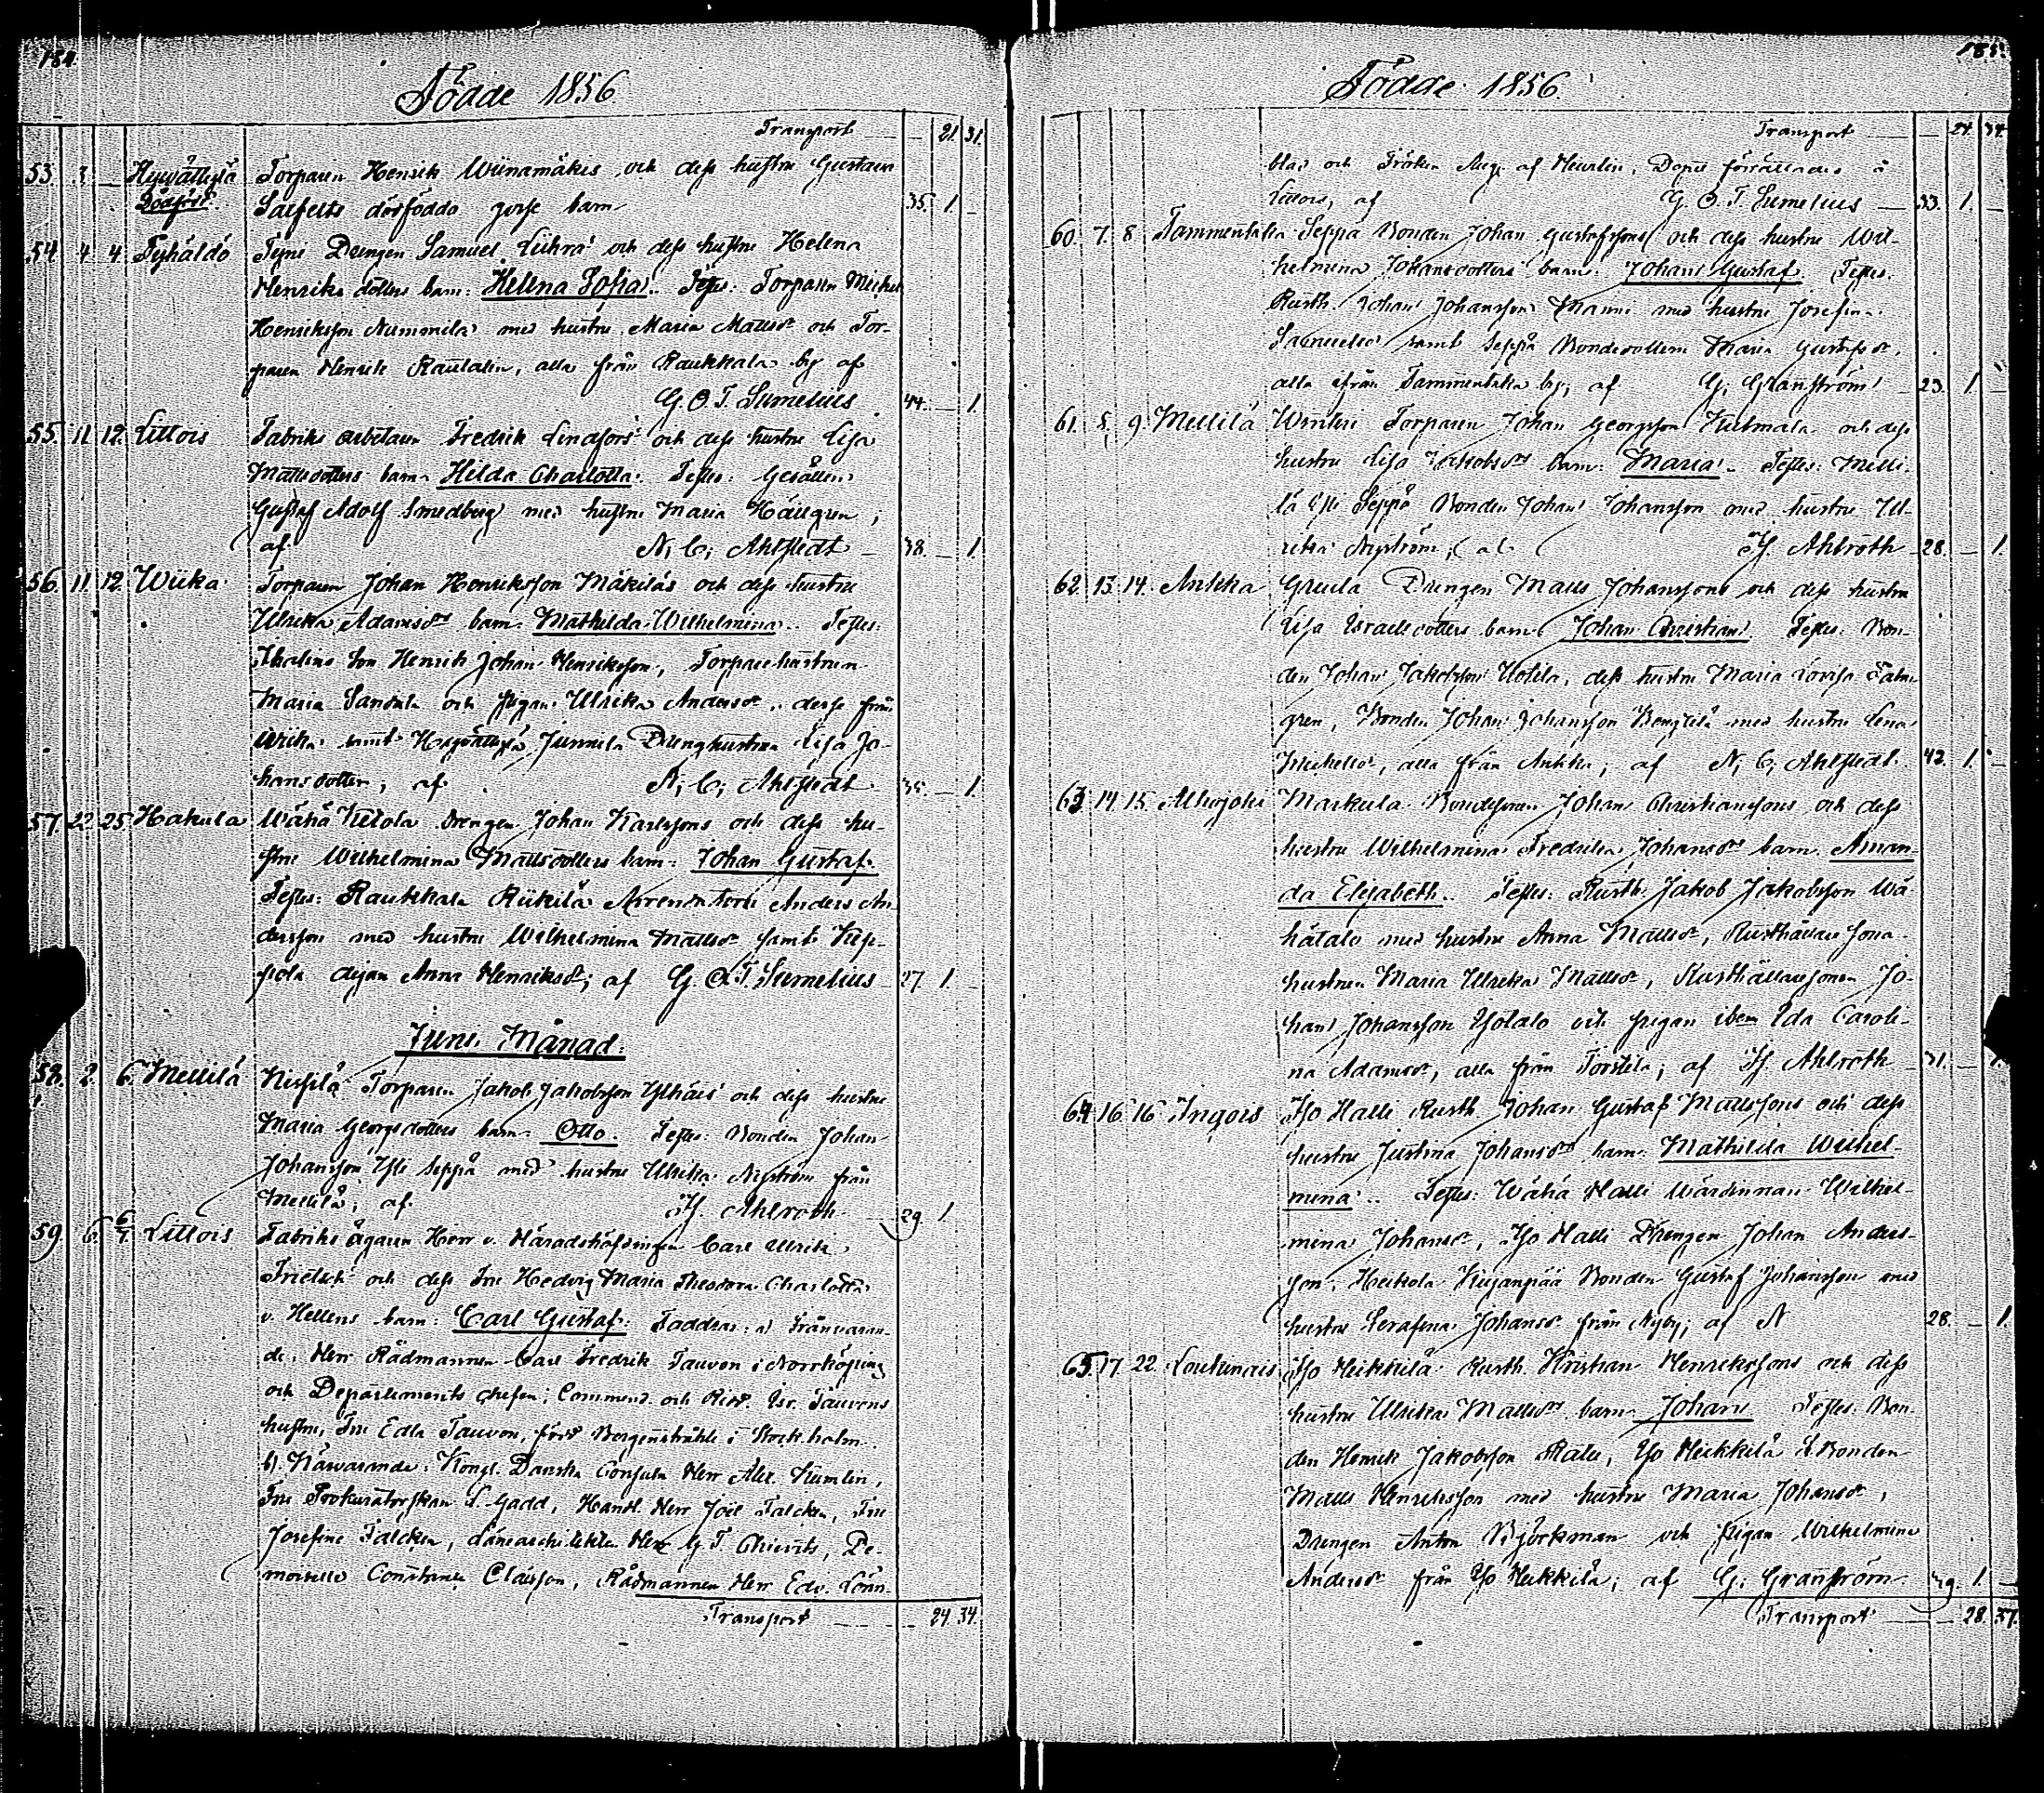 184.
Födde 1856.
Transport — 21. 31.
53. 3. — Hyvättylä Torparen Henrik Wiinamäkis och dess hustru Gustava
Dödfödt. Salfelts dödfödda gosse barn 35. 1. —
54. 4 4 Tyhäldö Tyni Drengen Samuel Liuhra och dess hustru Helena
Henriks dotters barn: Helena Sofia. Testes: Torparen Michel
Henriksson Nummila med hustru Maria Mattsdr och Tor-
paren Henrik Rautalin, alla från Raukkala by af
G. O. T. Sumelius 44. — 1.
55. 11. 12. Littois Fabriks arbetaren Fredrik Lindfors och dess hustru Lisa
Mattsdotters barn Hilda Charlotta. Testes: Gesällen
Gustaf Adolf Smedberg med hustru Maria Hällgren;
af N. C. Ahlstedt — 38. — 1.
56. 11. 12. Wiika Torparen Johan Henriksson Mäkiläs och dess hustru
Ulrika Adamsdrs barn Mathilda Wilhelmina. Testes:
Son Henrik Johan Henriksson, Torpare hustrun
Maria Sandula och pigan Ulrika Andersdr, desse från
Wiika samt Hyvättylä Junnila Drenghustrun Lisa Jo-
hansdotter; af N. C. Ahlstedt 35. — 1.
57. 22. 25. Hakula Wähä Kulola Drengen Johan Karlssons och dess hu-
stru Wilhelmina Mattsdotters barn: Johan Gustaf.
Testes: Raukkala Riikilä Arrendatorn Anders An-
dersson med hustru Wilhelmina Mattsdr samt
pola Anna Henriksdr; af G. O. T. Sumelius 27. 1. —
Juni Månad.
58. 2. 6. Mellilä Kissilä Torparen Jakob Jakobsson Ylhäis och dess hustru
Maria Georgsdotters barn Otto. Testes: Bonden Johan
Johansson Yli Seppä med hustru Ulrika Nyström från
Mellilä; af H. Ahlroth 29. 1.
59. 6. 6/7. Littois Fabriks ägaren Herr v. Häradshöfdingen Carl Ulrik
Frietsch och dess Fru Hedvig Maria Theodora Charlotta
v. Hellens barn: Carl Gustaf. Faddrar: a) Frånvaran-
de: Herr Rådmannen Carl Fredrik Tauvon i Norrköping
och Departements chefen, Commend. och Ridd. Isr. Tauvons
hustru, Fru Edla Tauvon, född Bergenstråhle i Stockholm.
b) Närvarande: Kongl. Danska Consuln Herr Alex. Kumlin,
Fru Prokuratorskan L. Gadd, Handl. Herr Joel Falcken, Fru
Josefine Falcken, Länearchitekten Herr G. T. Chievitz, De-
moiselle Constance Claësson, Rådmannen Herr Edv. Lönn-
Transport — 24. 34.
185.
Födde 1856.
Transport — 24. 34
blad och Fröken Aug. af Heurlin. Dopet förrättades å
Littois, af G. O. T. Sumelius — 33. 1. —
60. 7. 8 Tammentaka Seppä Bonden Johan Gustafssons och dess hustru Wil-
helmina Johansdotters barn: Johan Gustaf. Testes:
Rusth. Johan Johansson Manni med hustru Josefina
samt Seppä Bondedottern Maria Gustafsdr,
alla ifrån Tammentaka by; af G. Granström 23. 1. —
61. 8. 9. Mellilä Torparen Johan Georgsson Huhmala och dess
hustru Lisa Jakobsdrs barn: Maria. Testes: Melli-
lä Yli Seppä Bonden Johan Johansson med hustru Ul-
rika Nyström; af H. Ahlroth 28. — 1.
62. 13. 14. Ankka Greula Drengen Matts Johanssons och dess hustru
Lisa Israelsdotters barn Johan Christian. Testes: Bon-
den Johan Jakobsson Uotila, dess hustru Maria Lovisa Palm-
gren, Bonden Johan Johansson Bengtilä med hustru Lena
Michelsdr, alla från Ankka; af N. C. Ahlstedt. 42. 1. —
63. 14. 15. Alhojoki Markula Bondesonen Johan Christianssons och dess
hustru Wilhelmina Fredrika Johansdrs barn Aman-
da Elisabeth. Testes: Rusth. Jakob Jakobsson Wä-
hätalo med hustru Anna Mattsdr, Rusthållare sona-
hustrun Maria Ulrika Mattsdr, Rusthållaresonen Jo-
han Johansson Isotalo och pigan ibm Ida Caroli-
na Adamsdr, alla från Torstila; af H. Ahlroth 31. — 1.
64. 16. 16 Ingois Iso Halli Rusth. Johan Gustaf Mattssons och dess
hustru Justina Johansdrs barn Mathilda Wilhel-
mina. Testes: Wähä Halli Wärdinnan Wilhel-
mina Johansdr, Iso Halli Drengen Johan Anders-
son, Heikola Kujanpää Bonden Gustaf Johansson med
hustru Serafina Johansdr från Nyby; af N 28. — 1.
65. 17. 22. Loukinais Iso Heikkilä Rusth. Kristian Henrikssons och dess
hustru Ulrika Mattsdrs barn Johan. Testes: Bon-
den Henrik Jakobsson Ralli, Iso Heikkilä Bonden
Matts Henriksson med hustru Maria Johansdr,
Drengen Anton Björkman och pigan Wilhelmina
Andersdr från Iso Heikkilä; af G. Granström 29. 1. —
Transport — 28. 37.